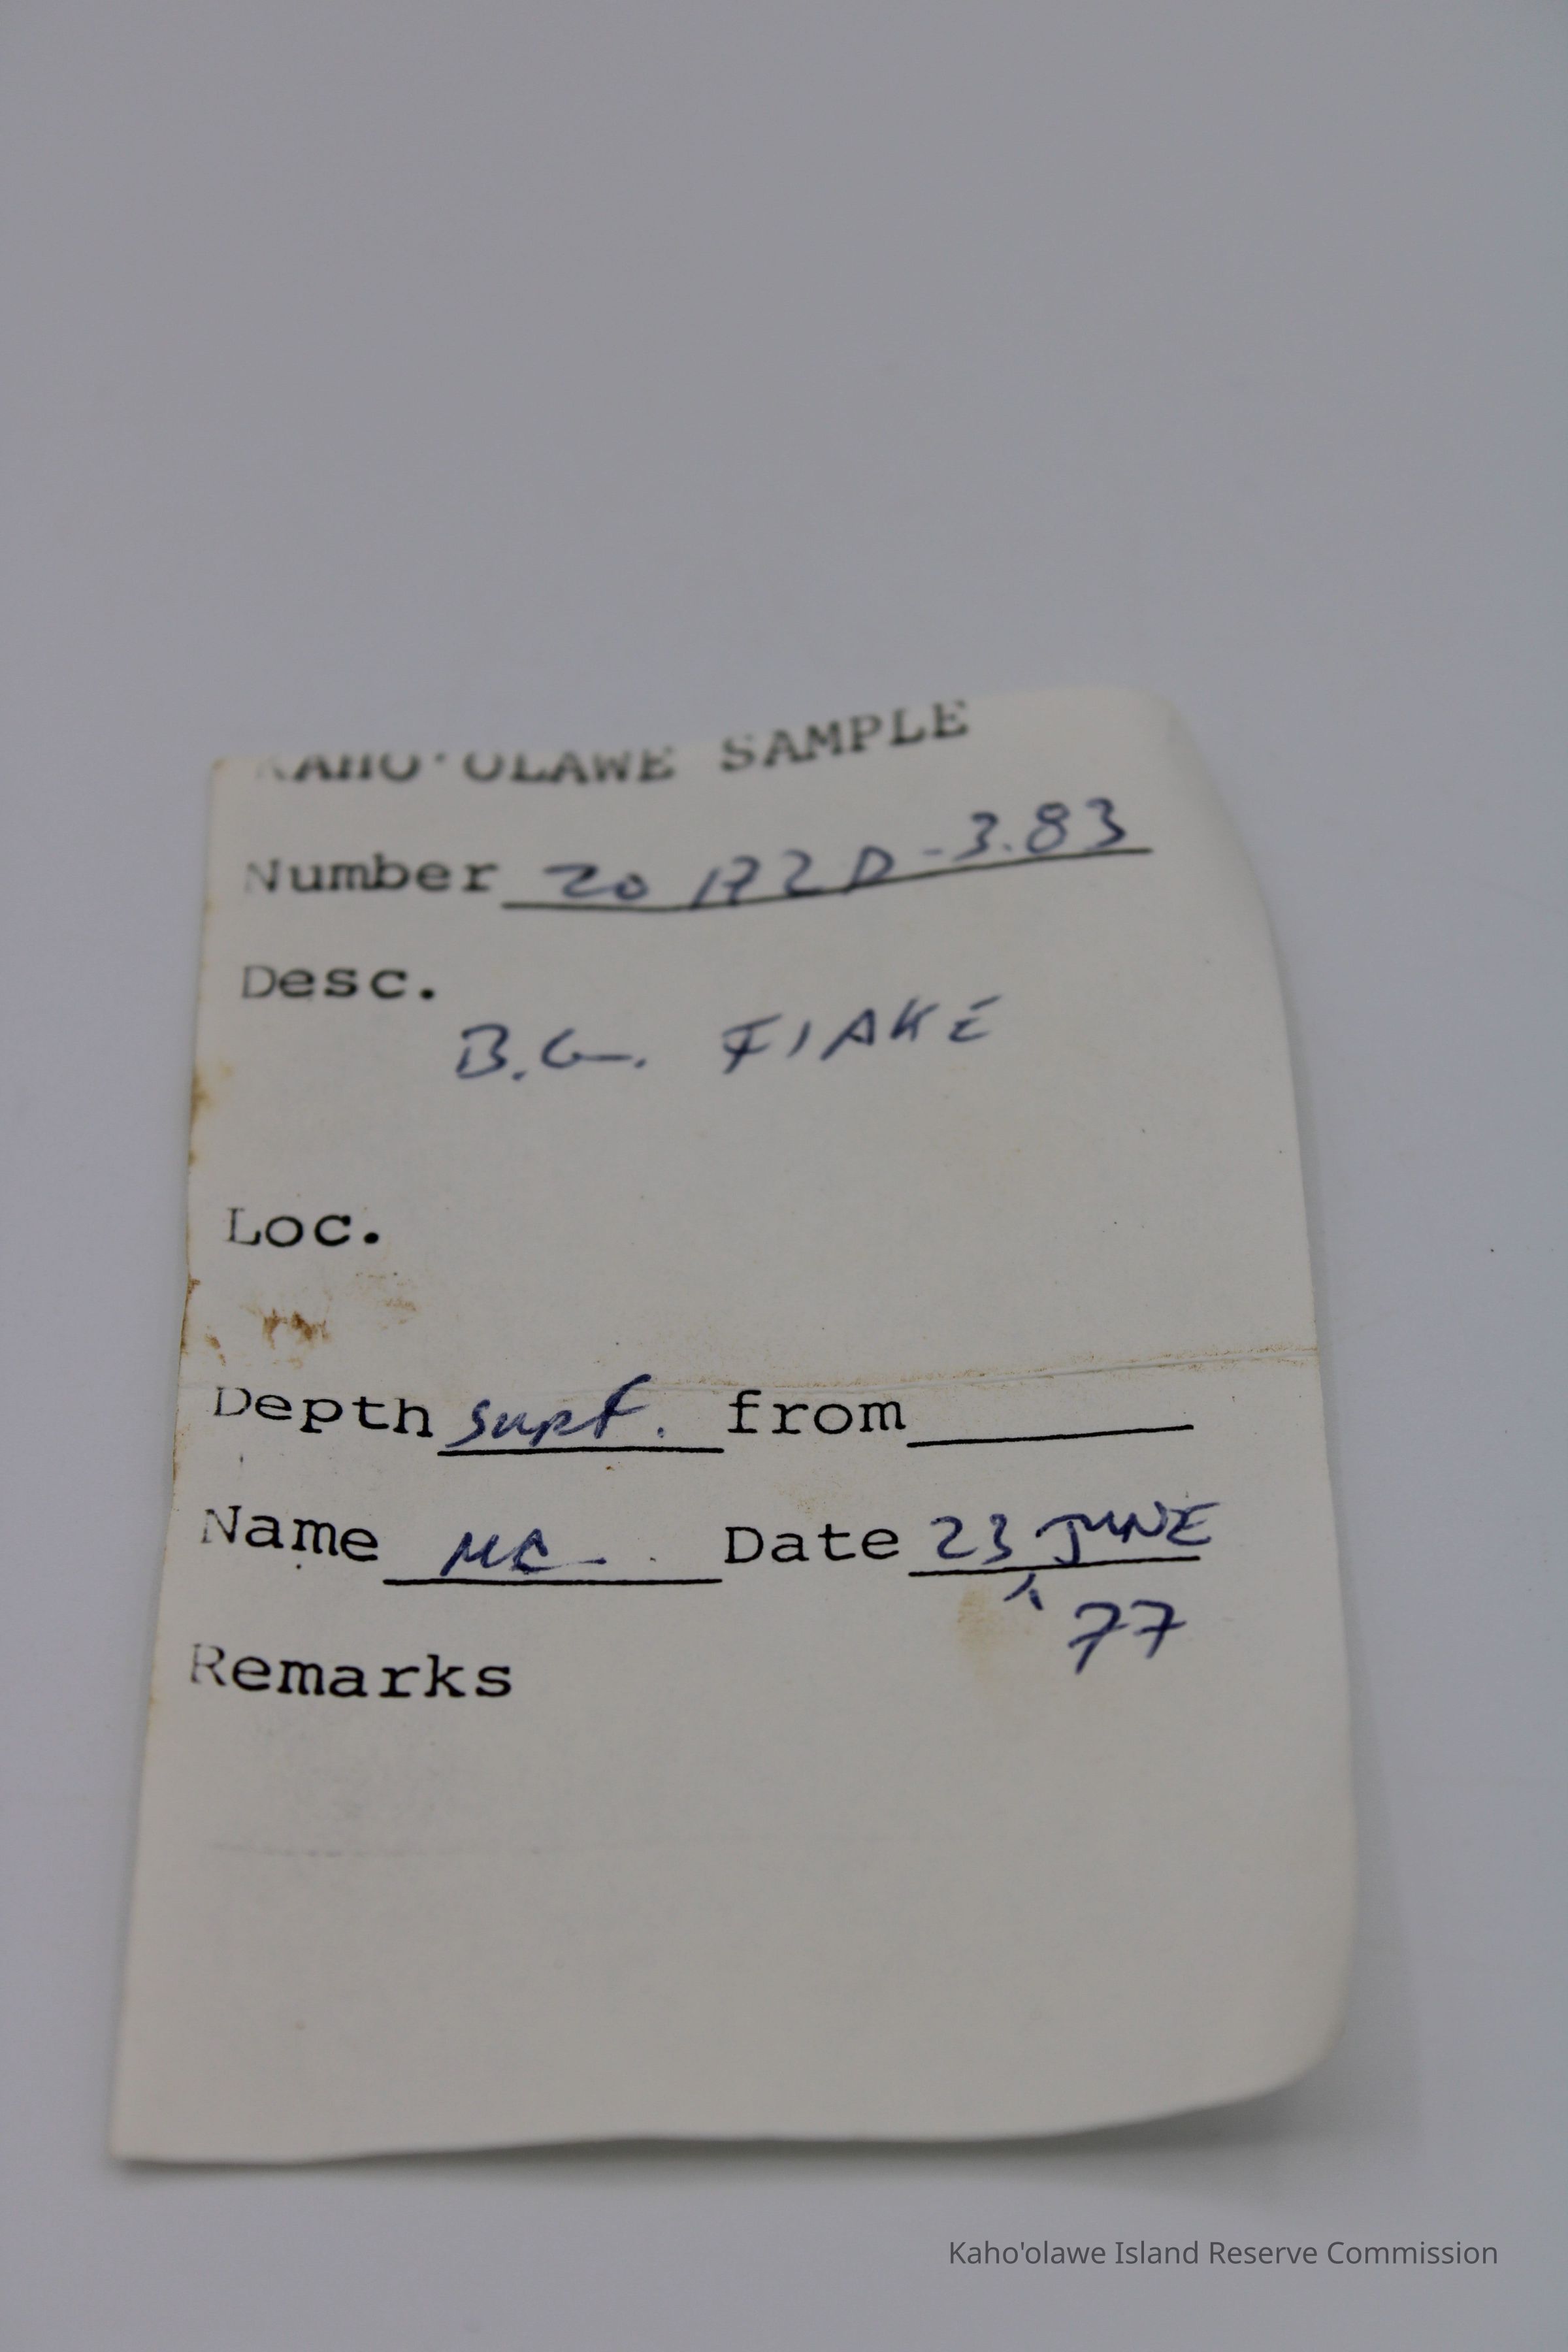 KAHO'OLAWE SAMPLE
Number 20 172D-3.83
Desc.
B.G. FlAKE
Loc.
Depth surf. from
Name MC Date 23 JUNE
77
Remarks
Kaho'olawe Island Reserve Commission